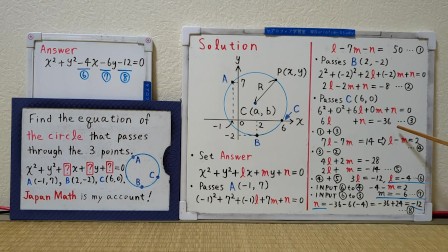 Answer
x²+y²-4x-6y-12=0
⑥ ⑦ ⑧
Find the equation of
the circle that passes
through the 3 points.
x²+y²+?x+?y+?=0
A(-1,7), B(2,-2), C(6,0)
Japan Math is my account!
A
B
C
Solution
y
A
7
P(x,y)
R
C(a,b)
C
-1
0
2
6
x
-2
B
• Set Answer
x²+y²+lx+my+n=0
• Passes A(-1,7)
(-1)²+7²+(-1)l+7m+n=0
l-7m-n= 50 …①
• Passes B(2,-2)
2²+(-2)²+2l+(-2)m+n=0
2l-2m+n=-8 …②
• Passes C(6,0)
6²+0²+6l+0m+n=0
6l +n=-36 …③
• ①+③
7l-7m =14 ⇨ l-m=2 ④
• ③-②
4l+2m=-28
2l+m =-14 ⑤
• ④+⑤ 3l=-12, l=-4 ⑥
• INPUT ⑥ to ④ -4-m=2, m=-6 ⑦
• INPUT ⑥ to ③
n=-36-6(-4)=-36+24=-12 ⑧